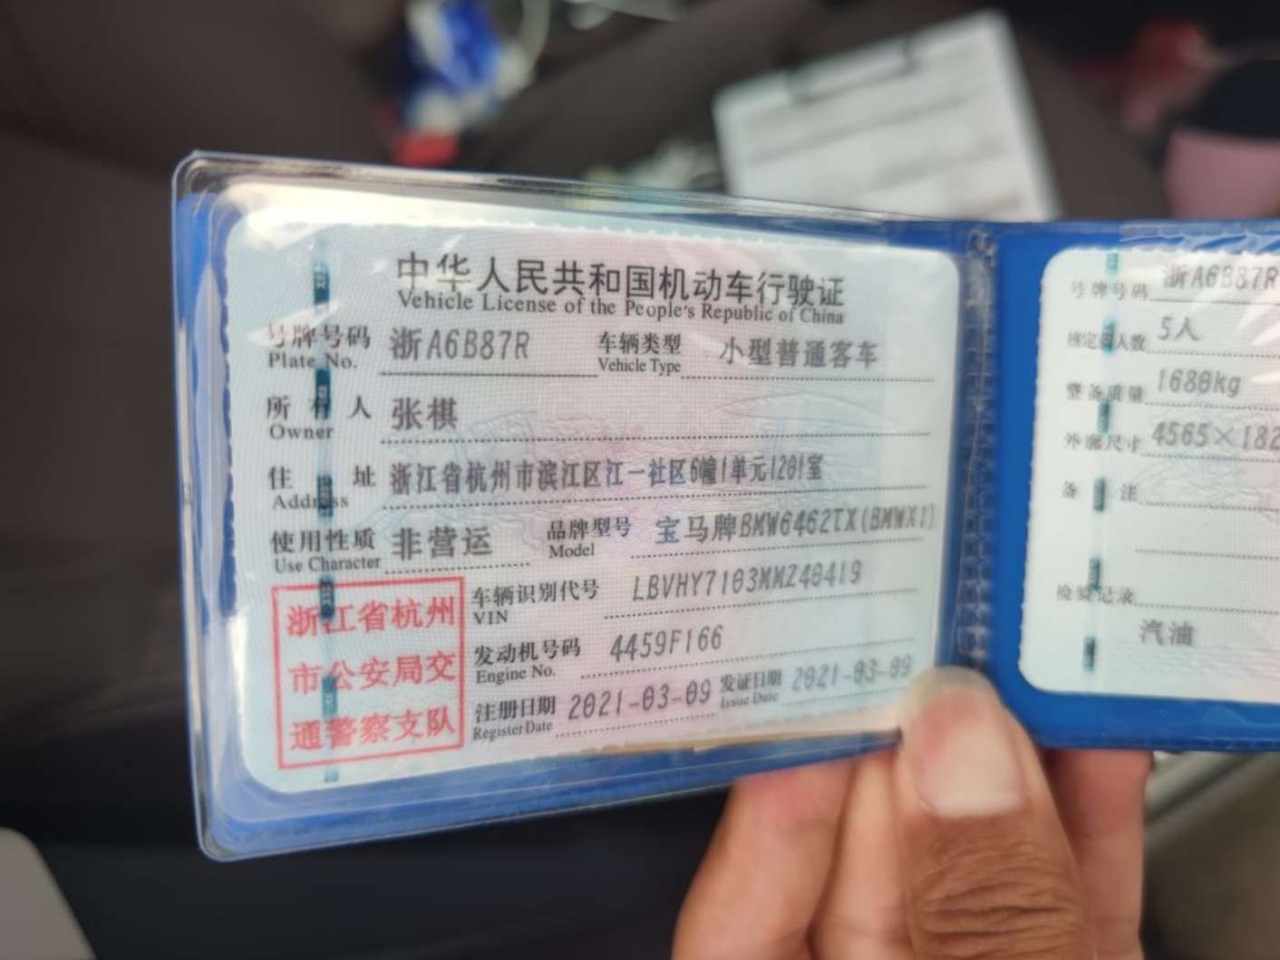 中华人民共和国机动车行驶证
Vehicle License of the People's Republic of China
号牌号码 浙A6B87R 车辆类型 小型普通客车
Plate No. Vehicle Type
所有人 张棋
Owner
住址 浙江省杭州市滨江区江一社区6幢1单元1201室
Address
使用性质 非营运 品牌型号 宝马牌BMW6462TX(BMWX1)
Use Character Model
浙江省杭州
市公安局交
通警察支队
车辆识别代号 LBVHY7103MMZ40419
VIN
发动机号码 4459F166
Engine No.
注册日期 2021-03-09 发证日期 2021-03-09
Register Date Issue Date
号牌号码 浙A6B87R
核定载人数 5人
整备质量 1680kg
外廓尺寸 4565×182
备注
检验记录
汽油